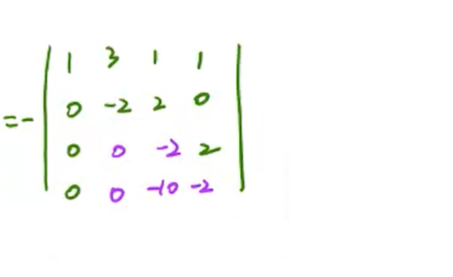 1 3 1 1
=- 0 -2 2 0
0 0 -2 2
0 0 -10 -2